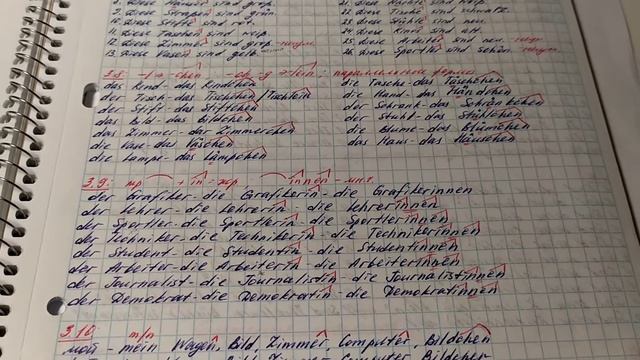 9. Diese Strümpfe sind grün.
10. Diese Stifte sind rot.
11. Diese Taschen sind
12. Diese Zimmer sind groß.
13. Diese Vasen sind gelb.
22. Diese Tische sind schwarz.
23. Diese Stühle sind neu.
24. Diese Kinder sind alt.
25. Diese Arbeiter sind neu.
26. Diese Sportler sind schön.
3.8.
das Kind - das Kindchen
der Tisch - das Tischchen/Tischlein
der Stift - das Stiftchen
das Bild - das Bildchen
das Zimmer - das Zimmerchen
die Vase - das Väschen
die Lampe - das Lämpchen
die Tasche - das Täschchen
die Hand - das Händchen
der Schrank - das Schränkchen
der Stuhl - das Stühlchen
die Blume - das Blümchen
das Haus - das Häuschen
3.9. мр + in = жр innen - мн.ч.
der Grafiker - die Grafikerin - die Grafikerinnen
der Lehrer - die Lehrerin - die Lehrerinnen
der Sportler - die Sportlerin - die Sportlerinnen
der Techniker - die Technikerin - die Technikerinnen
der Student - die Studentin - die Studentinnen
der Arbeiter - die Arbeiterin - die Arbeiterinnen
der Journalist - die Journalistin - die Journalistinnen
der Demokrat - die Demokratin - die Demokratinnen
3.10. m/n
мой - mein Wagen, Bild, Zimmer, Computer, Bildchen